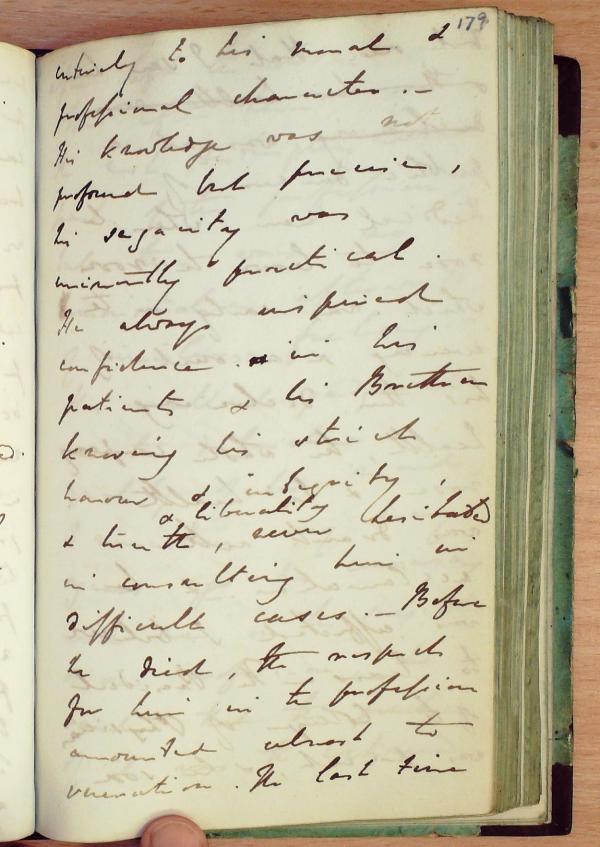 179
entirely to his moral &
professional character. —
His knowledge was not
profound but precise,
his sagacity was
eminently practical.
He always inspired
confidence in his
patients & his Brethren
knowing his strict
honour & integrity,
& liberality
& truth, never hesitated
in consulting him in
difficult cases. — Before
he died, the respect
for him in the profession
amounted almost to
veneration. The last time